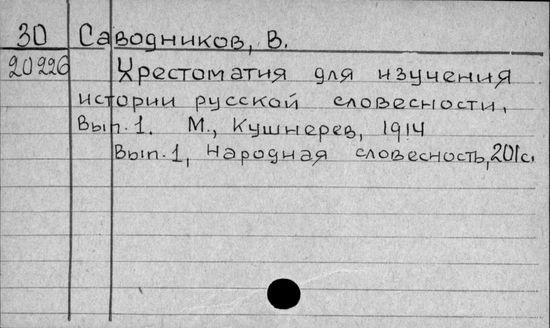 30 Саводников, В.
20226 Хрестоматия для изучения
истории русской словесности.
Вып. 1. М., Кушнерев, 1914
Вып. 1, Народная словесность, 201с.